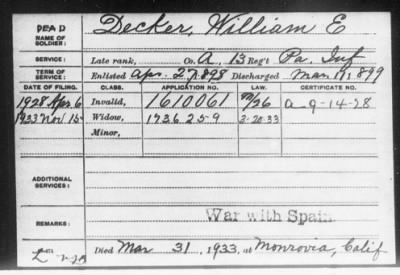 DEAD
NAME OF SOLDIER: Decker, William E
SERVICE: Late rank, Co. A, 13 Reg't Pa. Inf
TERM OF SERVICE: Enlisted Apr. 27, 1898 Discharged Mar. 11, 1899
DATE OF FILING. CLASS. APPLICATION NO. LAW. CERTIFICATE NO.
1928 Apr. 6 Invalid, 1610061 A 9-14-28
1933 Nov 15 Widow, 1736259 3-20-33
Minor,
ADDITIONAL SERVICES:
REMARKS: War with Spain
Died Mar 31, 1933, at Monrovia, Calif